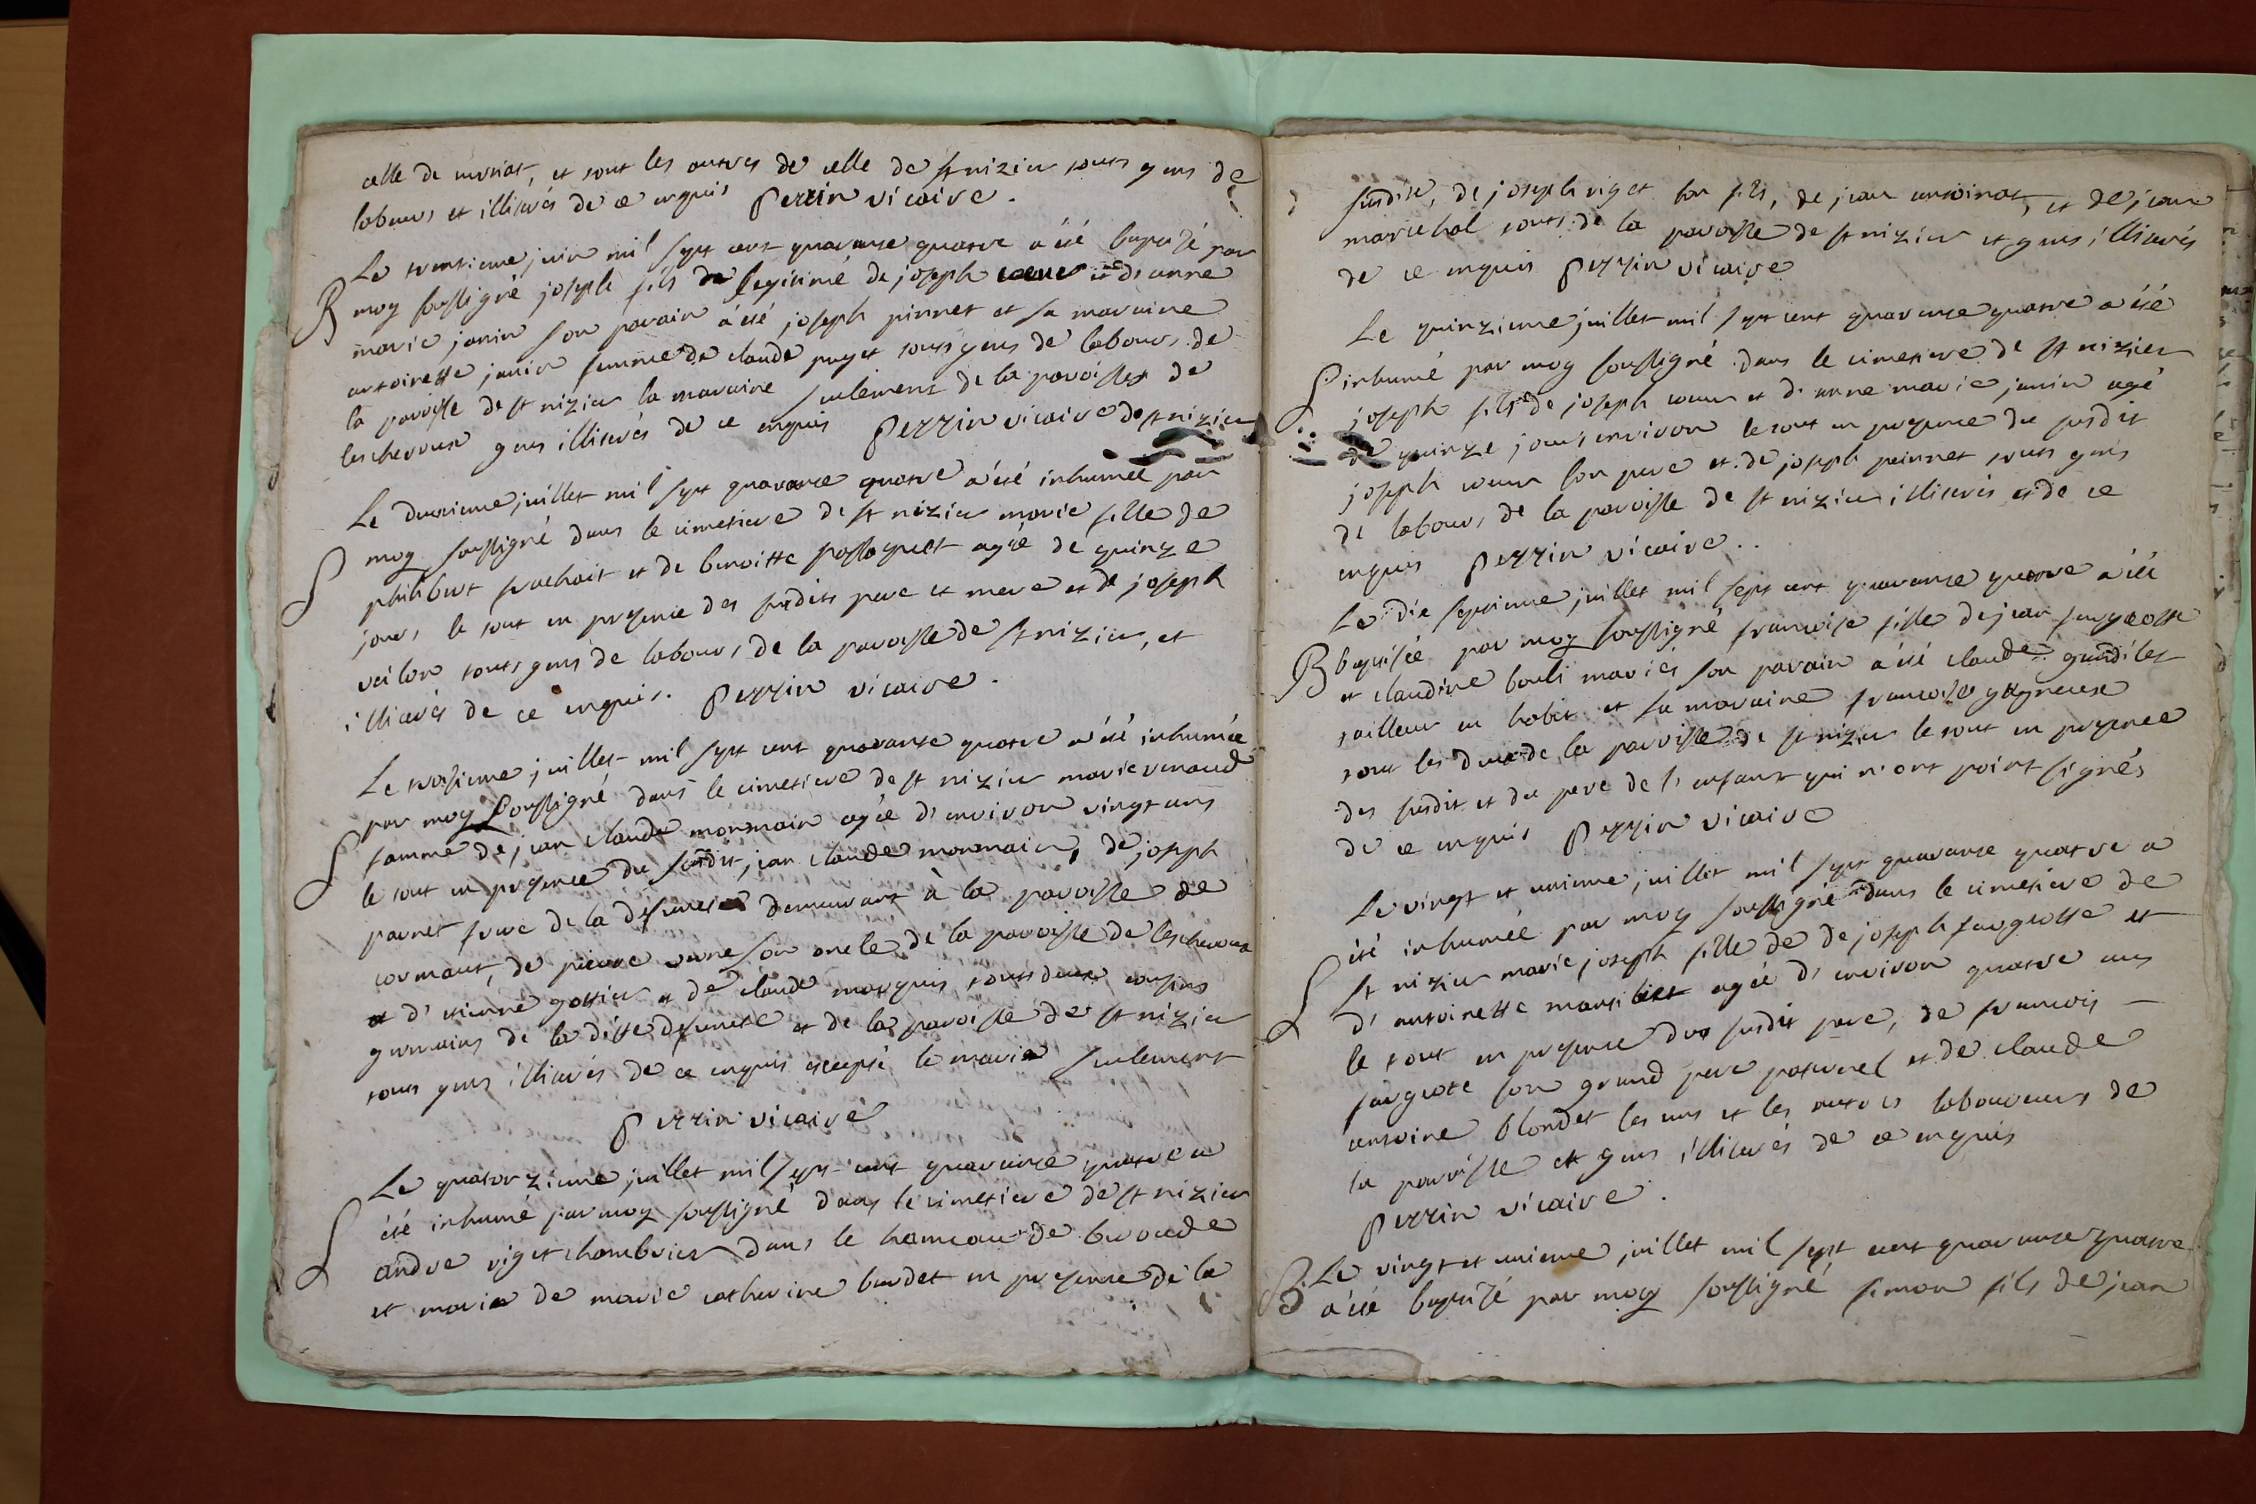 celle de moriat, et tout les autres de celle de st nizier touts gens de
labours et illiterés de ce enquis Perrin vicaire.
Le trentieme juin mil sept cent quarante quatre a été baptisé par
B moy soussigné joseph fils de legitimé de joseph et d'anne
marie janin son parain a été joseph pinnet et sa maraine
antoinette janin femme de claude puget touts gens de labours de
la paroisse de st nizier la maraine seulement de la paroisse de
lescheroux gens illiterés de ce enquis Perrin vicaire de st nizier
Le deuxieme juillet mil sept quarante quatre a été inhumée par
S moy soussigné dans le cimetiere de st nizier marie fille de
philibert frachait et de benoitte possaquet agée de quinze
jours le tout en presence des susdits pere et mere et de joseph
veilon touts gens de labours de la paroisse de st nizier, et
illiterés de ce enquis. Perrin vicaire.
Le troisieme juillet mil sept cent quarante quatre a été inhumée
par moy soussigné dans le cimetiere de st nizier marie renaud
S famme de jean claude mormain agée d'environ vingt ans
le tout en presence du susdit jean claude mormain, de joseph
parnet frere de la defunte demeurant à la paroisse de
cormaut, de pierre son oncle de la paroisse de lescheroux
et d'etienne gottier et de claude marquis touts deux cousins
germains de la ditte defunte et de la paroisse de st nizier
tous gens illiterés de ce enquis excepté le marie seulement
Perrin vicaire
Le quatorzieme juillet mil sept cent quarante quatre a
S été inhumé par moy soussigné dans le cimetiere de st nizier
andre viget chambrier dans le hameau de
et marie de marie catherine burdet en presence de la
susdite, de joseph viget son fils, de jean antoinat, et de jean
marichal touts de la paroisse de st nizier et gens illiterés
de ce enquis Perrin vicaire
Le quinzieme juillet mil sept cent quarante quatre a été
S inhumé par moy soussigné dans le cimetiere de st nizier
joseph fils de joseph coeur et d'anne marie janin agé
de quinze jours environ le tout en presence du susdit
joseph coeur son pere et de joseph peinnet touts gens
de labours de la paroisse de st nizier illiterés et de ce
enquis Perrin vicaire..
Le dix septieme juillet mil sept cent quarante quatre a été
B baptisée par moy soussigné francoise fille de jean faugeotte
et claudine bouli mariés son parain a été claude
tailleur en habit et sa maraine francoise gagneux
tout les deux de la paroisse de st nizier le tout en presence
des susdit et du pere de l'enfant qui n'ont point signés
de ce enquis Perrin vicaire
Le vingt et unieme juillet mil sept quarante quatre a
S été inhumée par moy soussigné dans le cimetiere de
st nizier marie joseph fille de de joseph faugeotte et
d'antoinette agée d'environ quatre ans
le tout en presence du susdit pere, de francois
faugeote son grand pere paternel et de claude
antoine blondet les uns et les autres laboureurs de
la paroisse et gens illiterés de ce enquis
Perrin vicaire.
B Le vingt et unieme juillet mil sept cent quarante quatre
a été baptisé par moy soussigné simon fils de jean